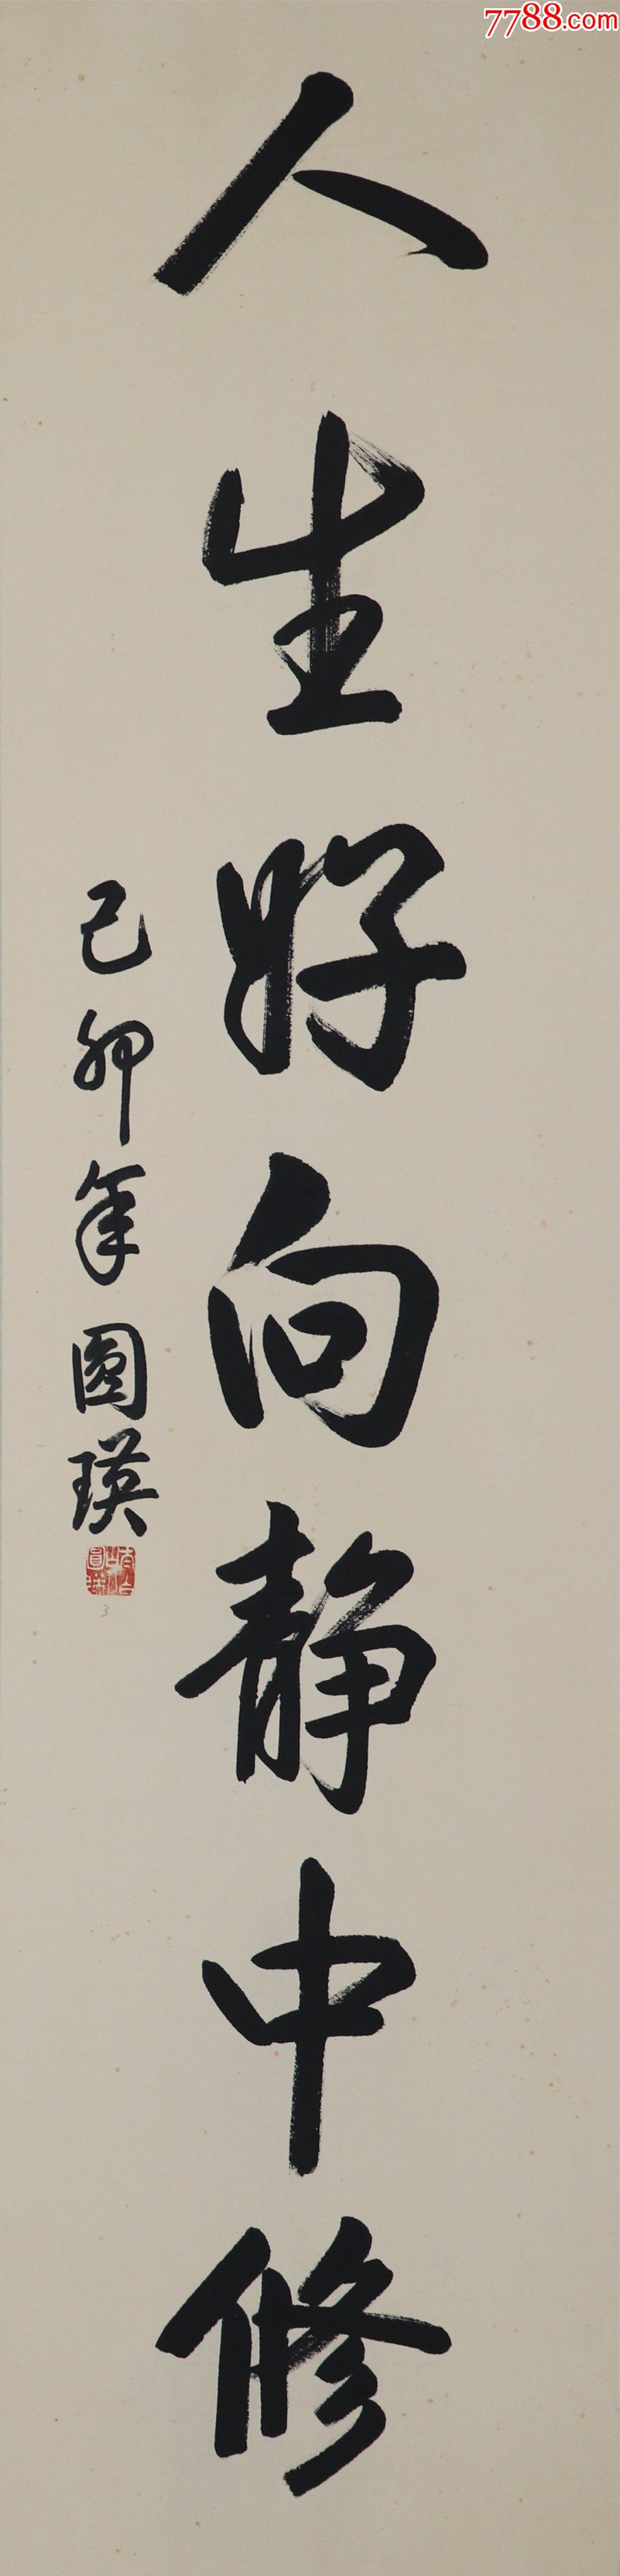 7788.com
人生好向静中修
己卯年圆瑛